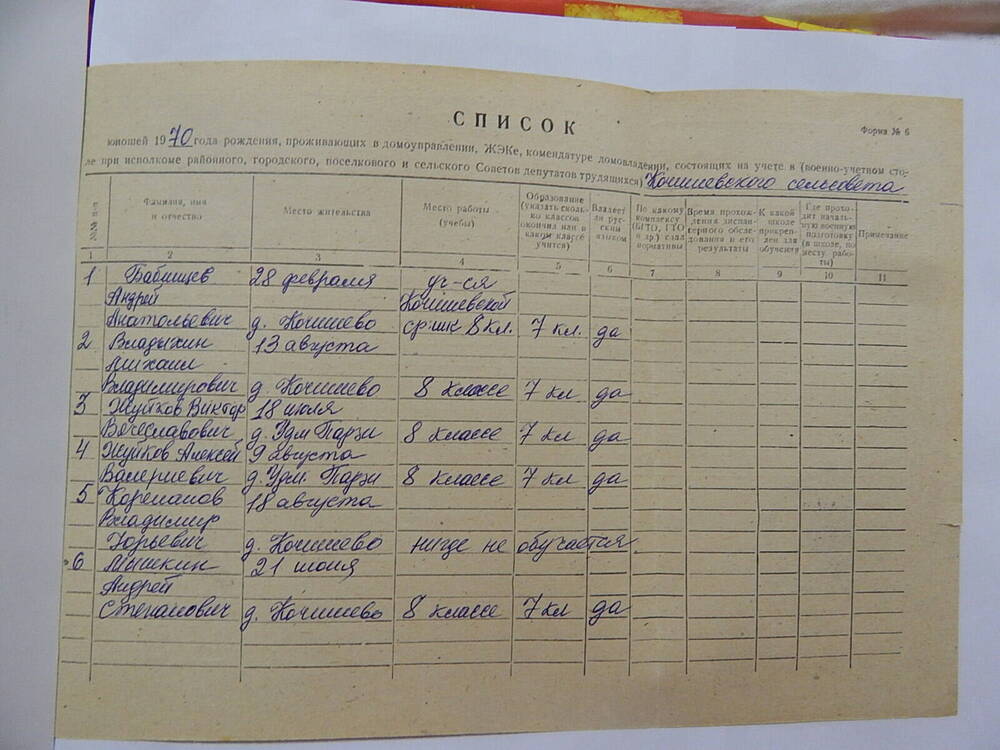 СПИСОК
Форма № 6
юношей 1970 года рождения, проживающих в домоуправлении, ЖЭКе, комендатуре домовладении, состоящих на учете в (военно-учетном сто-
ле при исполкоме районного, городского, поселкового и сельского Советов депутатов трудящихся) Кочишевского сельсовета
№№ п-п
Фамилия, имя и отчество
Место жительства
Место работы (учебы)
Образование (указать сколько классов окончил или в каком классе учится)
Владеет ли русским языком
По какому комплексу (БГТО, ГТО и др.) сдал нормативы
Время прохождения диспансерного обследования и его результаты
К какой школе прикреплен для обучения
Где проходит начальную военную подготовку (в школе, по месту работы)
Примечание
1 2 3 4 5 6 7 8 9 10 11
1 Бабинцев 28 февраля уч-ся
Андрей Кочишевской
Анатольевич д. Кочишево ср. шк 8 кл. 7 кл. да
2 Владыкин 13 августа
Михаил
Владимирович д. Кочишево 8 классе 7 кл да
3 Жуйков Виктор 18 июля
Вячеславович д. Удм Парзи 8 классе 7 кл да
4 Жуйков Алексей 9 августа
Валериевич д. Удм. Парзи 8 классе 7 кл да
5 Корепанов 18 августа
Владимир
Юрьевич д. Кочишево нигде не обучается
6 Мышкин 21 июня
Андрей
Степанович д. Кочишево 8 классе 7 кл да